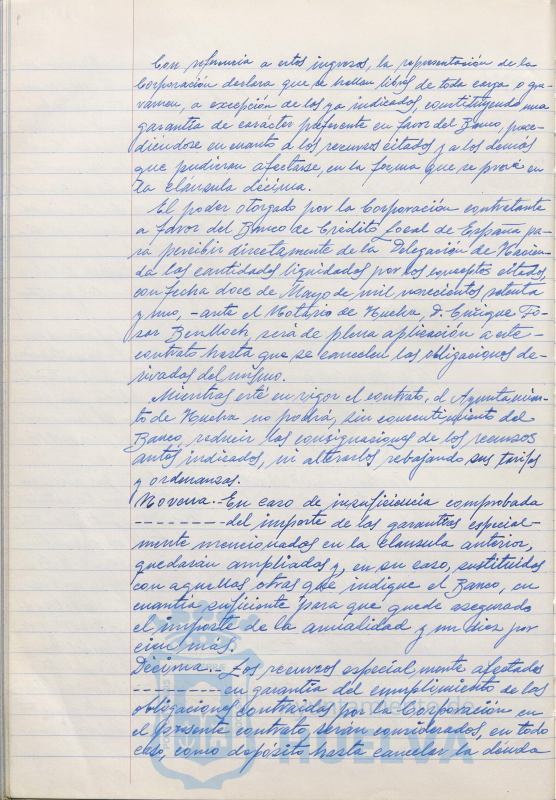 Con referencia a estos ingresos, la representación de la
Corporación declara que se hallan libres de toda carga o gra-
vamen, a excepción de los ya indicados, constituyendo una
garantía de carácter preferente en favor del Banco, proce-
diéndose en cuanto a los recursos citados y a los demás
que pudieran afectarse, en la forma que se prevé en
la cláusula décima.
El poder otorgado por la Corporación contratante
a favor del Banco de Crédito Local de España pa-
ra percibir directamente de la Delegación de Hacien-
da las cantidades liquidadas por los conceptos citados,
con fecha doce de Mayo de mil novecientos setenta
y uno, -ante el Notario de Huelva, D. Enrique
Bendloch será de plena aplicación a este
contrato hasta que se cancelen las obligaciones de-
rivadas del mismo.
Mientras esté en vigor el contrato, el Ayuntamien-
to de Huelva no podrá, sin consentimiento del
Banco, reducir las consignaciones de los recursos
antes indicados, ni alterarlos rebajando sus tarifas
y ordenanzas.
Novena.- En caso de insuficiencia comprobada
- - - - - - - del importe de las garantías especial-
mente mencionados en la cláusula anterior,
quedarán ampliadas y, en su caso, sustituidos
con aquellas otras que indique el Banco, en
cuantía suficiente para que quede asegurado
el importe de la anualidad y un diez por
cien más.
Décima.- Los recursos especialmente afectados
- - - - - - - en garantía del cumplimiento de las
obligaciones contraídas por la Corporación en
el presente contrato, serán considerados, en todo
caso, como depósito hasta cancelar la deuda
Ayuntamiento de
HUELVA